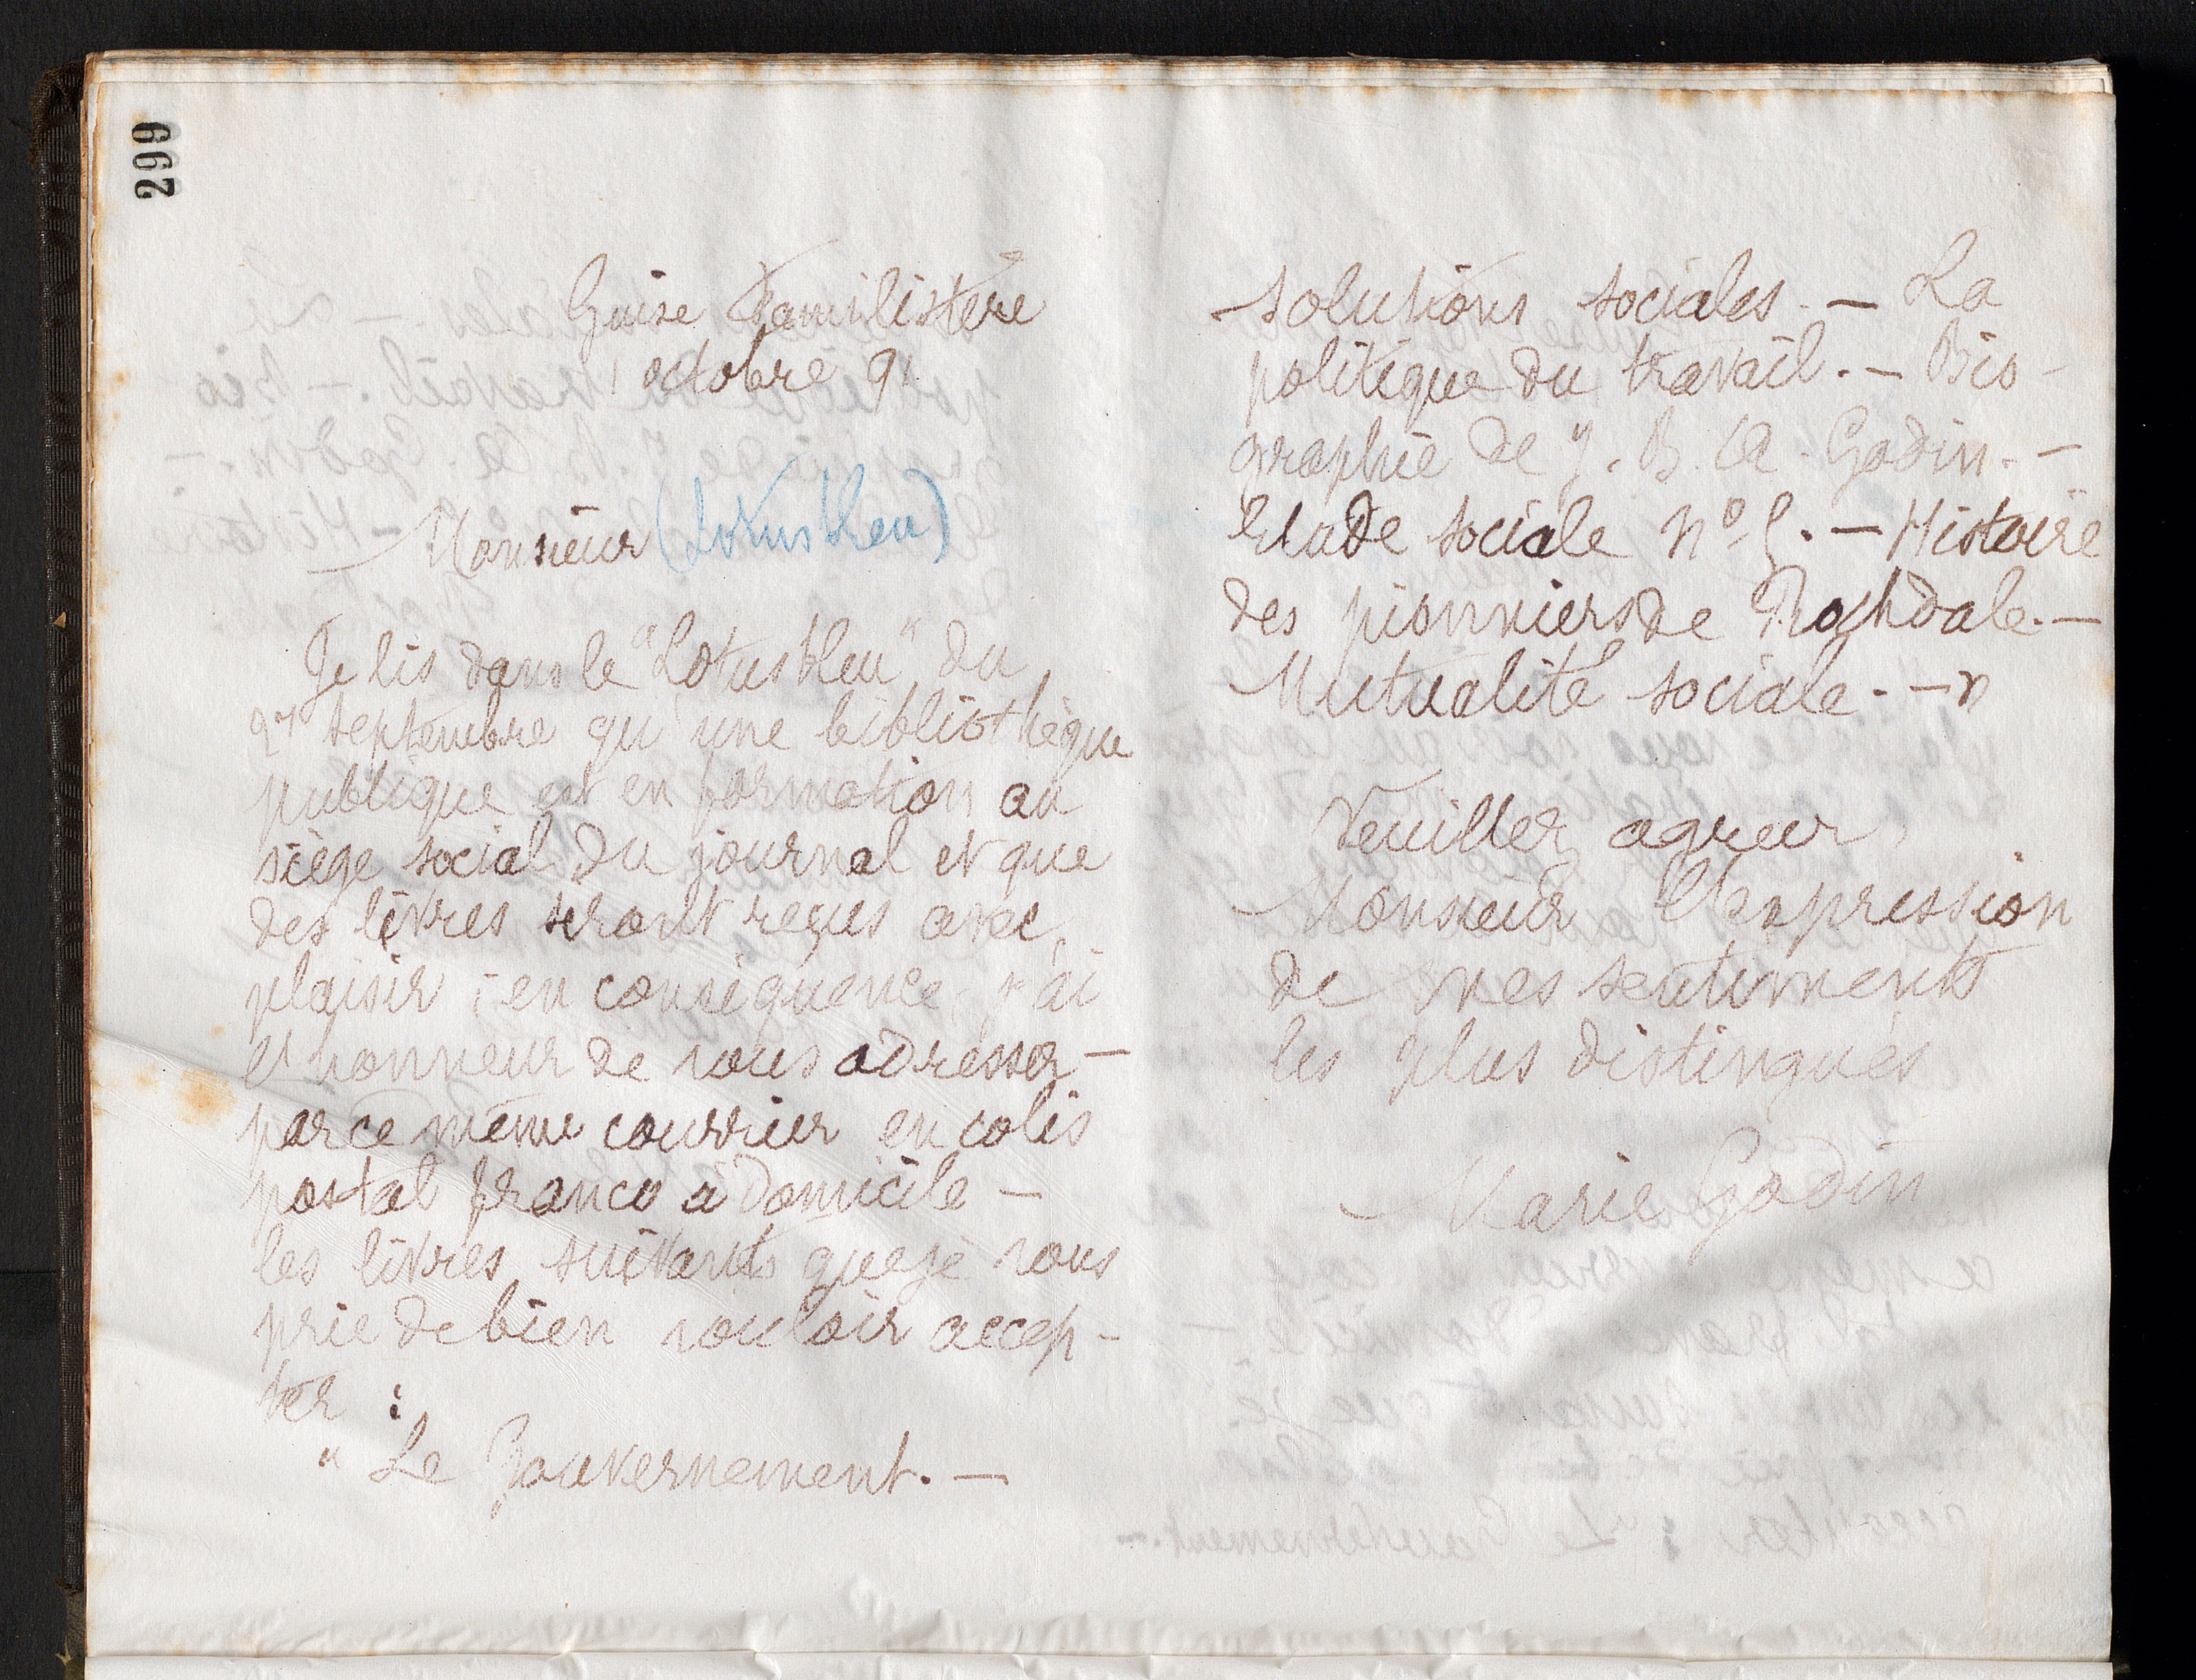 299
Guise Familistère
1 octobre 91
Monsieur (Lotus bleu)
Je lis dans le "Lotus bleu" du
27 septembre qu'une bibliothèque
publique est en formation au
siège social du journal et que
des livres seront reçus avec
plaisir ; en conséquence, j'ai
l'honneur de vous adresser —
par ce même courrier en colis
postal franco à domicile —
les livres suivants que je vous
prie de bien vouloir accep-
ter :
" Le Gouvernement. —
Solutions sociales. — La
politique du travail. — Bio-
graphie de J. B. A. Godin. —
Etude sociale No 5. — Histoire
des pionniers de Rochdale. —
Mutualité sociale. — "
Veuillez agréer,
Monsieur l'expression
de mes sentiments
les plus distingués
Marie Godin